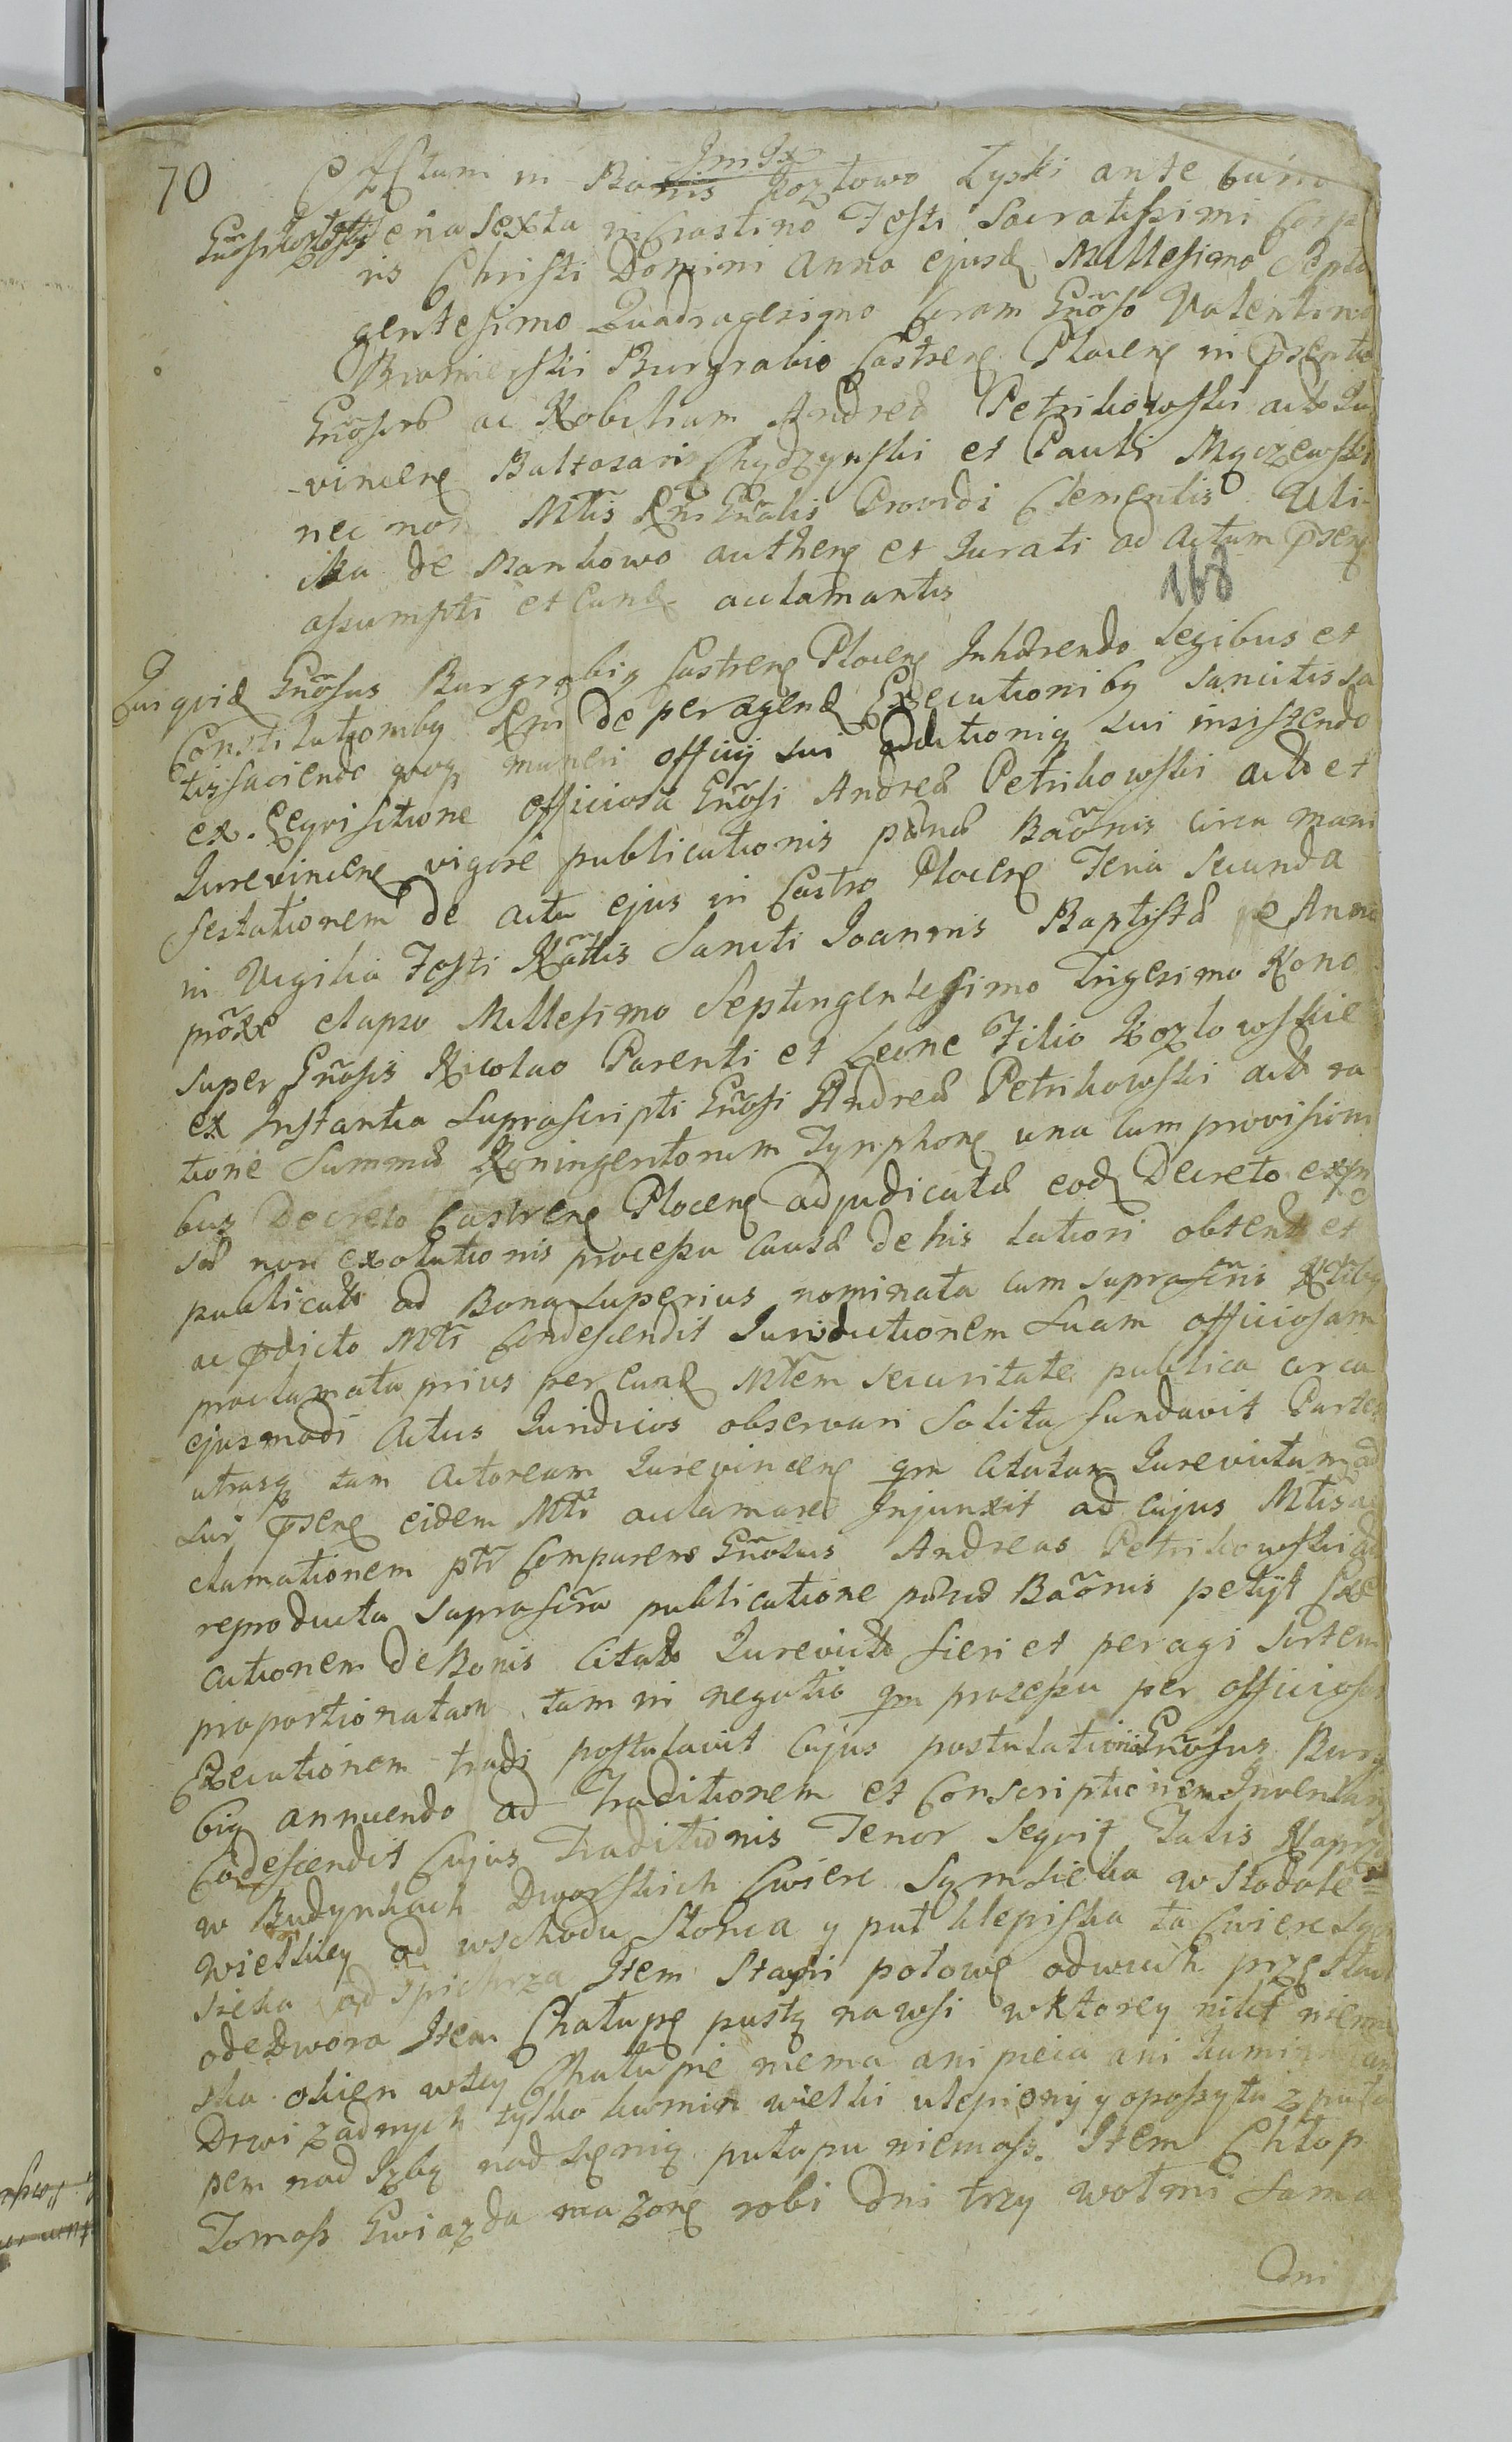 70
Actum in Bonis Kozłowo Łyski ante
Feria Sexta in Crastino Festi Sacratissimi Corpo
ris Christi Domini Anno ejusd Millesimo Septin
gentesimo Quadragesimo Coram Gnoso Valentino
Burgrabio Castrens Plocens in Psentia
Gnosor ac Nobilium Andreæ Petrikowski act Ju
-revincens Baltasaris Chydzynski et Pauli Mączewski
nec non Mtis Rni Gnalis Providi Clementis Uli-
ska de Mankowo authens et Jurati ad Actum Psens
assumpti et Eund acclamantis
168
Qui quid Gnosus Burgrabiq Castrens Plocens Inhærendo Legibus et
Constitutionibq Rni de peragend Executionibq sancitis sa
tisfaciendo quoq muneri officij sui additioniq sui insistendo
ex Reqvisitione officiosa Gnosi Andreæ Petrikowski act et
Jurevincens vigore publicationis pænæ Baonis circa mani
festationem de actu ejus in Castro Plocens Feria Secunda
in Vigilia Festi Nattis Sancti Joannis Baptistæ de Anno
proxe elapso Millesimo Septingentesimo Trigesimo Nono
super Gnosis Nicolao Parenti et Leone Filio Kozłowskie
ex Instantia Suprascripti Gnosi Andreæ Petrikowski act ra
tione Summæ Noningentorum Tynphons una cum provisioni
bus Decreto Castrens Plocens adjudicatæ eod Decreto
non exolutionis processu causæ de his latiori obtent et
publicat ad Bona superius nominata cum suprascris Nobilibq
ac pdicto Mti Condescendit Jurisdictionem Suam officiosam
proclamata prius per Eund Mtem securitate publica circa
ejusmodi Actus Juridicos observari Solita fundavit Partes
utrasq tam Actoream Jurevincens qm Citatam Jurevictam ad
sui Psens eidem Mti acclamare Injunxit ad cujus Mtis ac
clamationem ptr Comparens Gnosus Andreas Petrikowski act
reproducta suprascra publicatione pænæ Baonis petijt Exe
cutionem de Bonis Citat Jurevict fieri et peragi Sortem
proportionatam tam in negotio qm processu per officiosam
Executionem tradi postulavit Cujus postulationi Gnosus Burgra
biq annuendo ad Traditionem et Conscriptionem Inventarij
Codescendit Cujus Traditionis Tenor Seqvit Talis Naprzod
w Budynkach Dworskich cwierc Sąmsieka w Stodole
wielkiey od wschodu Słonca y puł klepiska ta cwierc Są
sieka od Spichrza Item Stayni połowę
ode Dwora Item Chałupę pustą na wsi w ktorey nikt niemi
ska okien w tey Chałupie niema ani pieca ani komina
Drzwi żadnych tylko komin wielki ulepiony y oposzyła z puła
pem nad Izbą nad sienią pułapu niemasz. Item Chłop
Tomasz Gwiazda ma żonę robi Dni trzy wołmi Sama
Dni